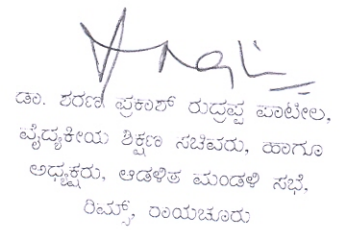 ಡಾ. ಶರಣ ಪ್ರಕಾಶ್ ರುದ್ರಪ್ಪ ಪಾಟೀಲ,
ವೈದ್ಯಕೀಯ ಶಿಕ್ಷಣ ಸಚಿವರು, ಹಾಗೂ
ಅಧ್ಯಕ್ಷರು, ಆಡಳಿತ ಮಂಡಳಿ ಸಭೆ,
ರಿಮ್ಸ್, ರಾಯಚೂರು